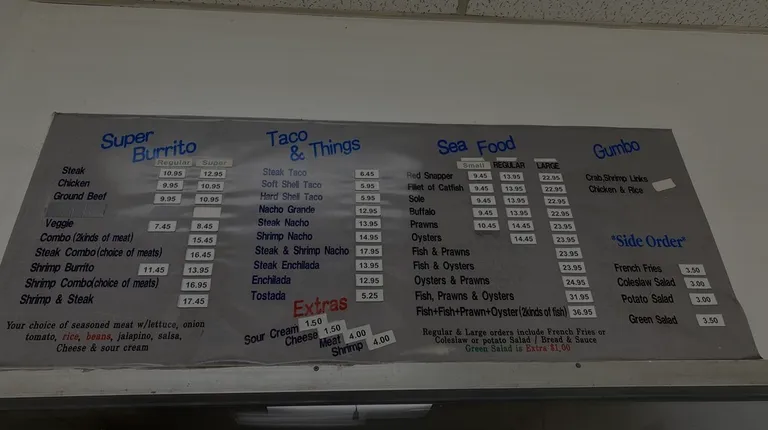 Super Burrito
Regular Super
Steak 10.95 12.95
Chicken 9.95 10.95
Ground Beef 9.95 10.95
Veggie 7.45 8.45
Combo (2kinds of meat) 15.45
Steak Combo(choice of meats) 16.45
Shrimp Burrito 11.45 13.95
Shrimp Combo(choice of meats) 16.95
Shrimp & Steak 17.45
Your choice of seasoned meat w/lettuce, onion
tomato, rice, beans, jalapino, salsa,
Cheese & sour cream
Taco & Things
Steak Taco 6.45
Soft Shell Taco 5.95
Hard Shell Taco 5.95
Nacho Grande 12.95
Steak Nacho 13.95
Shrimp Nacho 14.95
Steak & Shrimp Nacho 17.95
Steak Enchilada 13.95
Enchilada 12.95
Tostada 5.25
Extras
Sour Cream 1.50
Cheese 1.50
Meat 4.00
Shrimp 4.00
Sea Food
Small REGULAR LARGE
Red Snapper 9.45 13.95 22.95
Fillet of Catfish 9.45 13.95 22.95
Sole 9.45 13.95 22.95
Buffalo 9.45 13.95 22.95
Prawns 10.45 14.45 23.95
Oysters 14.45 23.95
Fish & Prawns 23.95
Fish & Oysters 23.95
Oysters & Prawns 24.95
Fish, Prawns & Oysters 31.95
Fish+Fish+Prawn+Oyster(2kinds of fish) 36.95
Regular & Large orders include French Fries or
Coleslaw or potato Salad / Bread & Sauce
Green Salad is Extra $1.00
Gumbo
Crab,Shrimp Links
Chicken & Rice
"Side Order"
French Fries 3.50
Coleslaw Salad 3.00
Potato Salad 3.00
Green Salad 3.50